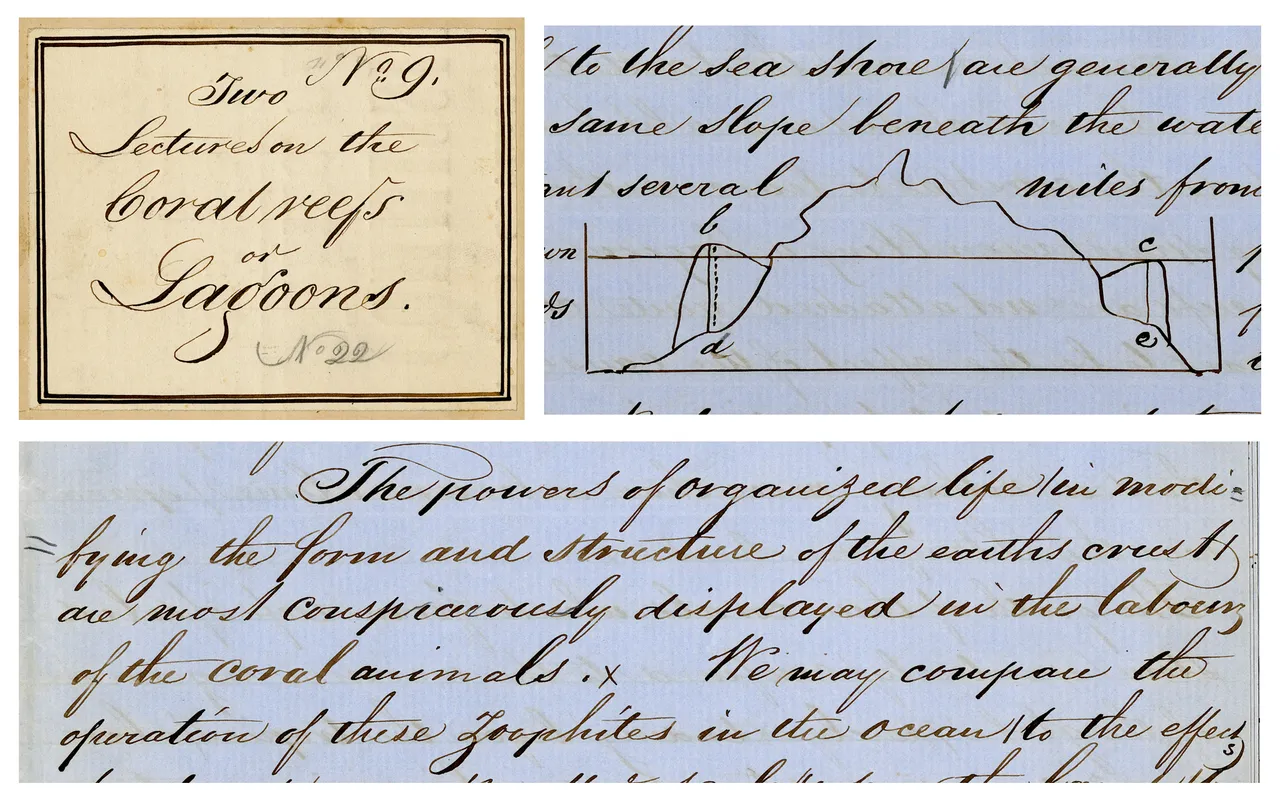 No 9.
Two
Lectures on the
Coral reefs
or
Lagoons.
No 22
to the sea shore / are generally
same slope / beneath the wate
several miles from
b c
d e
The powers of organized life / in modi=
fying the form and structure of the earths crust /
are most conspicuously displayed in the labours
of the coral animals . x We may compare the
operation of these Zoophites in the ocean / to the effects